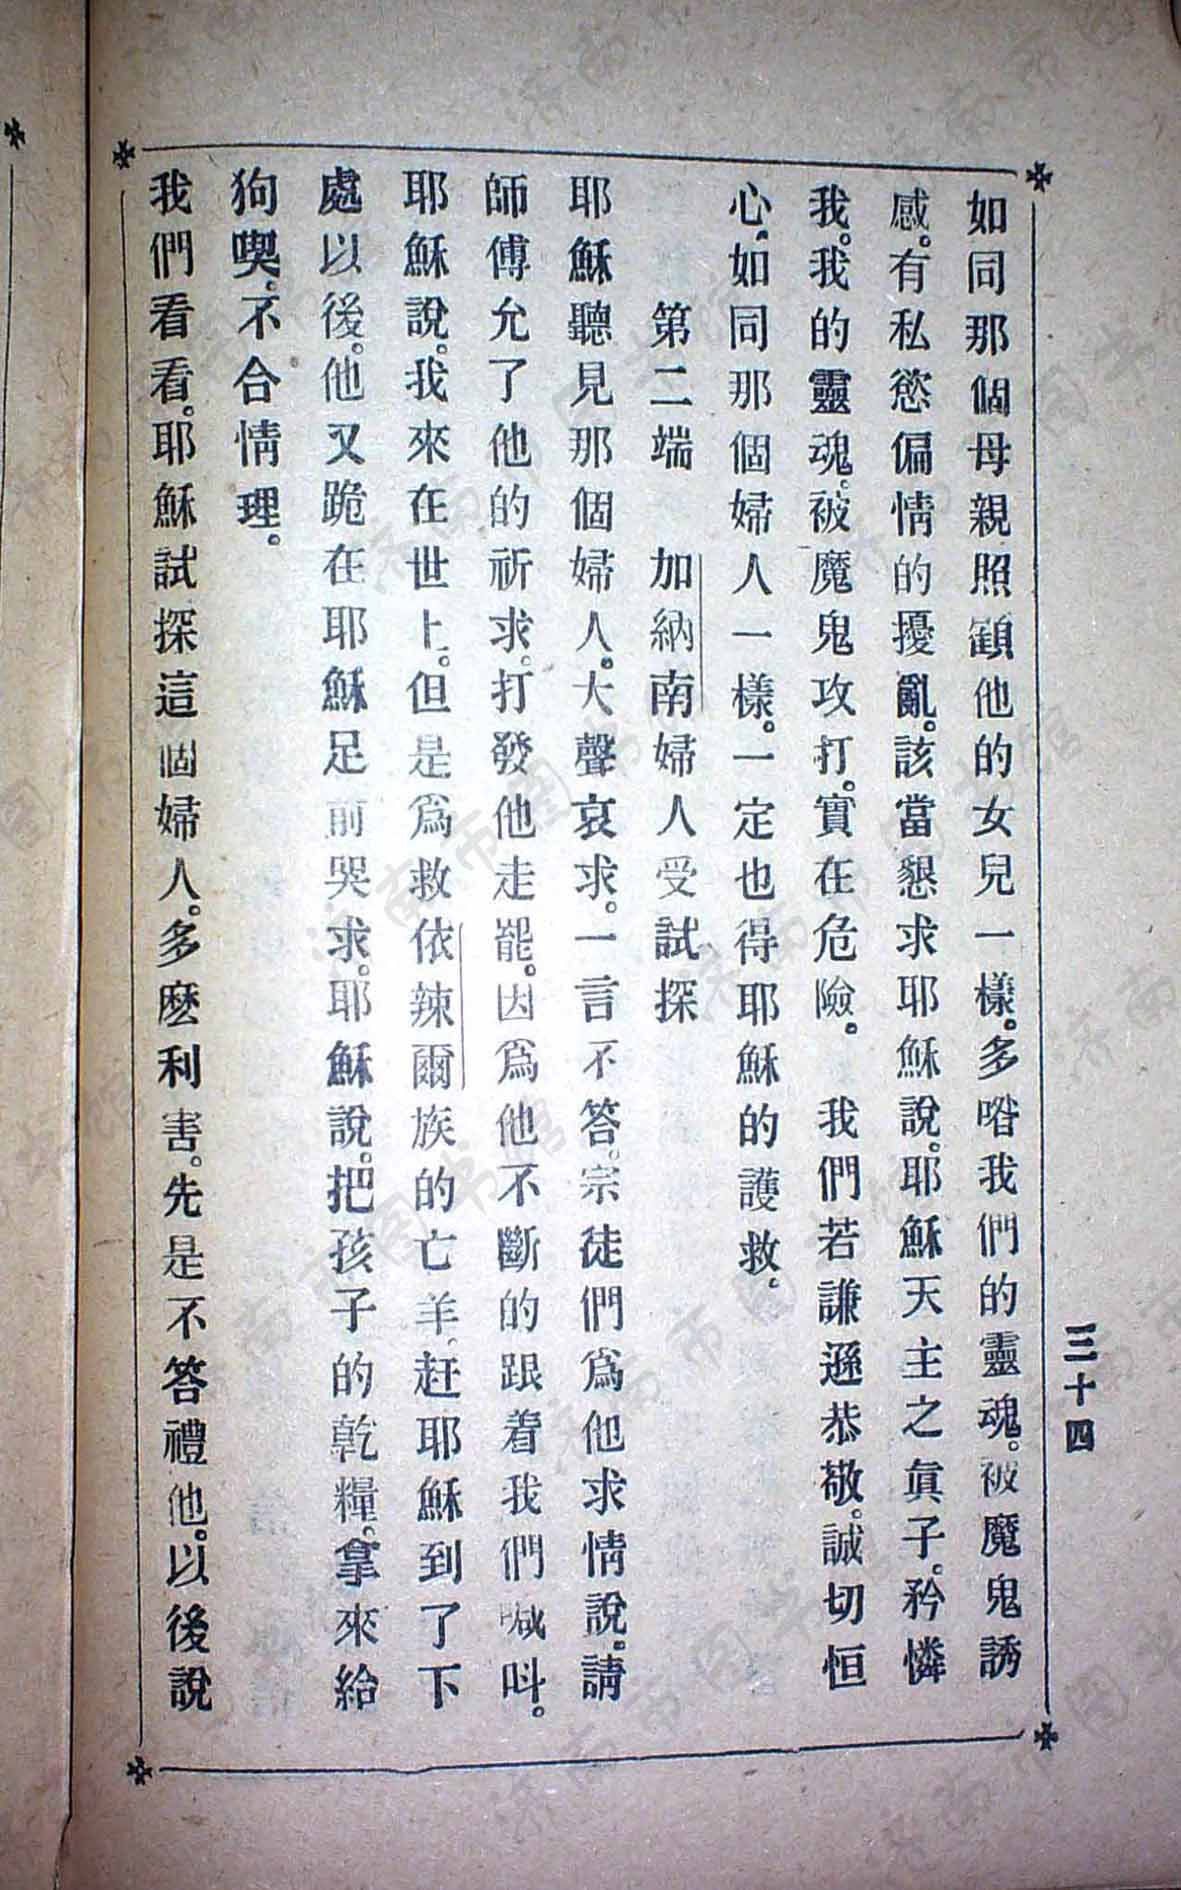 三十四
如同那個母親照顧他的女兒一樣。多喒我們的靈魂。被魔鬼誘
感。有私慾偏情的擾亂。該當懇求耶穌說。耶穌天主之眞子。矜憐
我。我的靈魂。被魔鬼攻打。實在危險。　我們若謙遜恭敬。誠切恒
心。如同那個婦人一樣。一定也得耶穌的護救。
第二端　加納南婦人受試探
耶穌聽見那個婦人。大聲哀求。一言不答。宗徒們爲他求情說。請
師傅允了他的祈求。打發他走罷。因爲他不斷的跟着我們喊呌。
耶穌說。我來在世上。但是爲救依辣爾族的亡羊。赶耶穌到了下
處以後。他又跪在耶穌足前哭求。耶穌說。把孩子的乾糧。拿來給
狗喫。不合情理。
我們看看。耶穌試探這個婦人。多麽利害。先是不答禮他。以後說